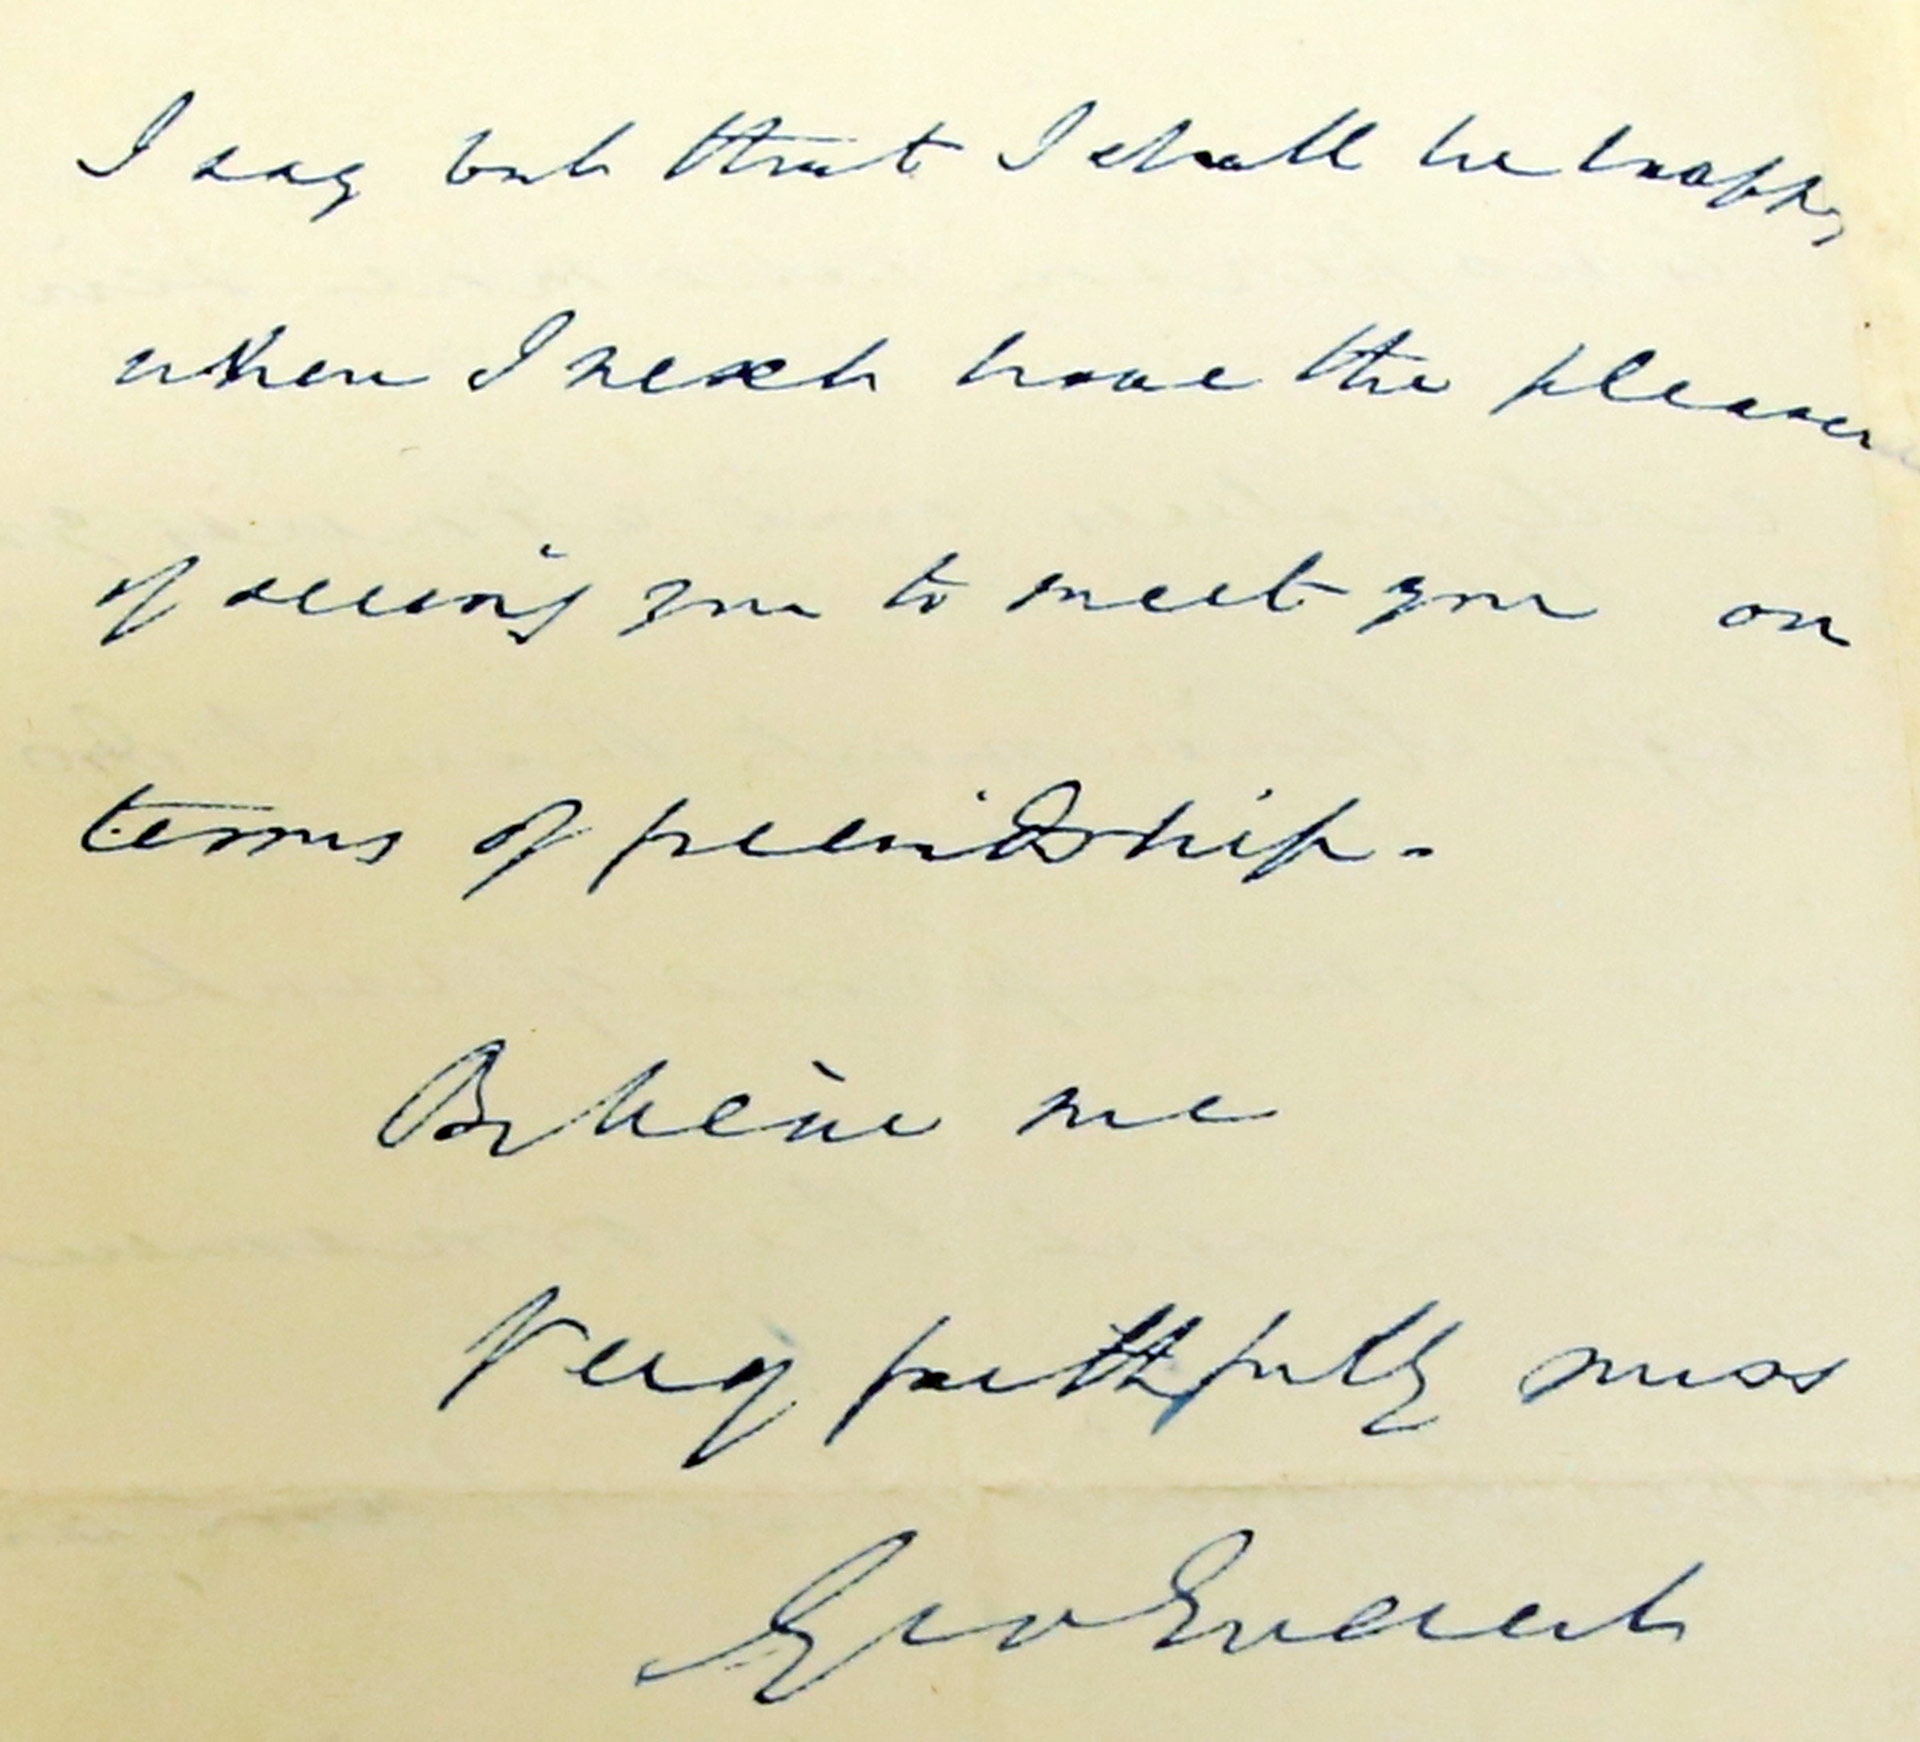 I say but that I shall be happy
when I next have the pleasure
of seeing you to meet you on
terms of freindship.
Believe me
Very faithfully mios
Geo Everest